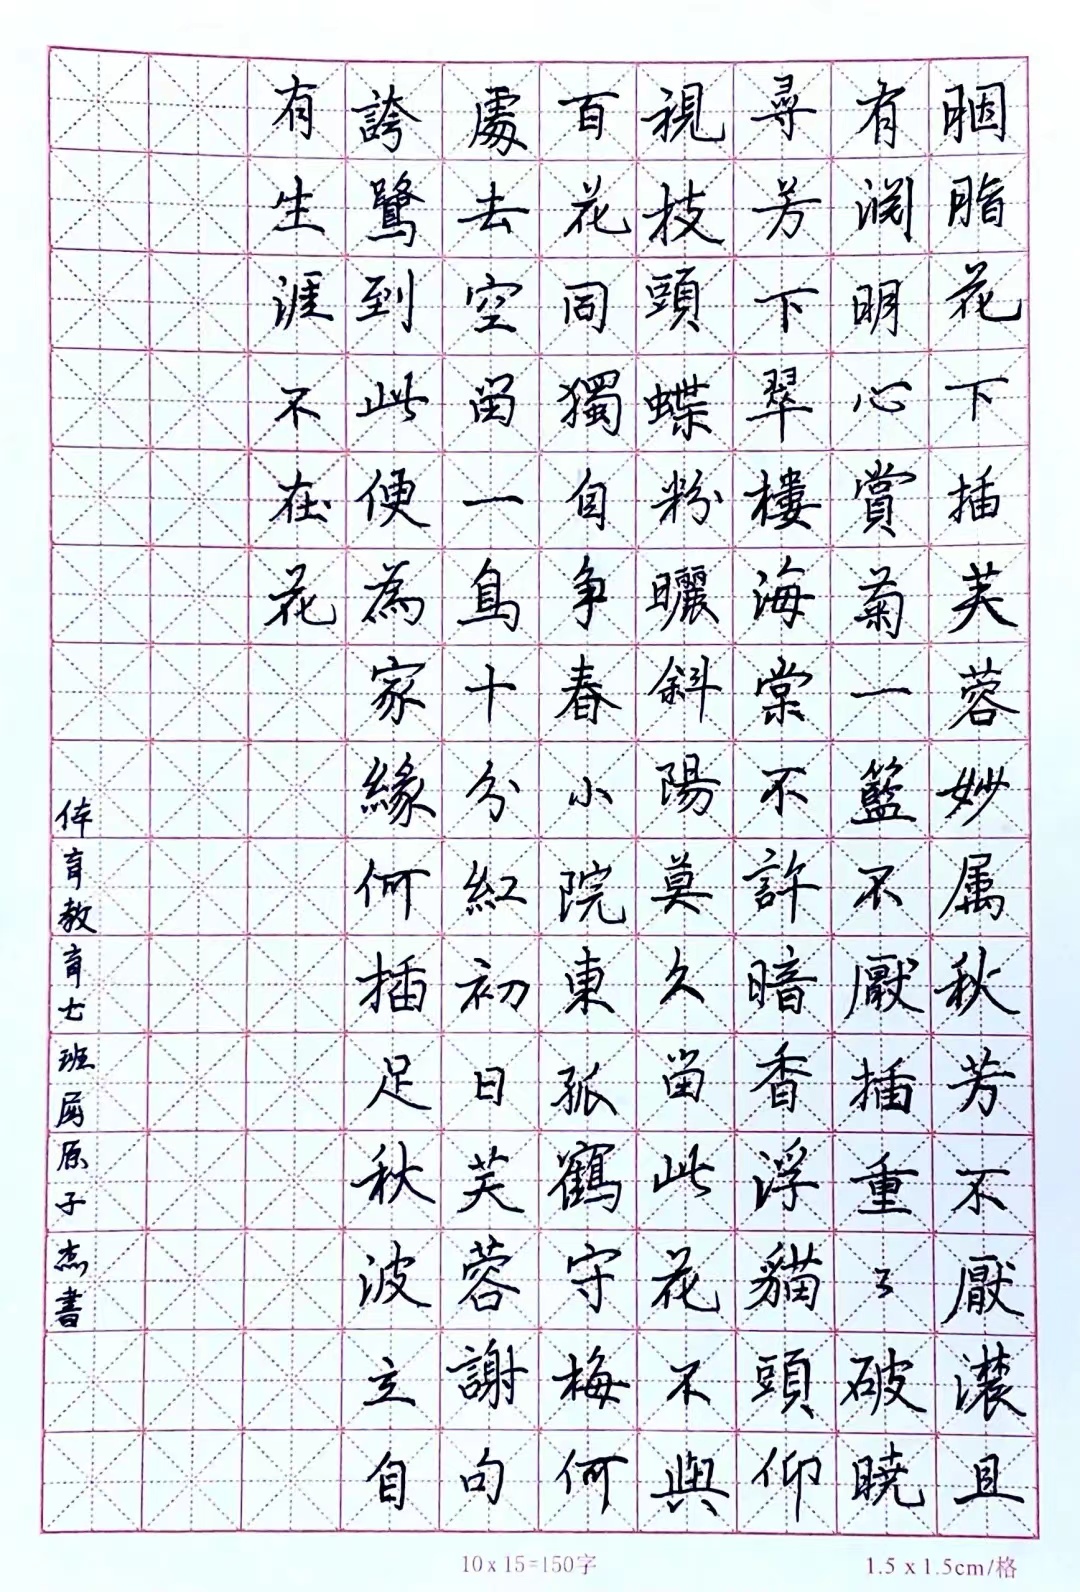 胭脂花下插芙蓉妙属秋芳不厭濃且
有渕明心賞菊一籃不厭插重〻破曉
尋芳下翠樓海棠不許暗香浮貓頭仰
視技頭蝶粉曬斜陽莫久留此花不與
百花同獨自争春小院東孤鶴守梅何
處去空留一鳥十分紅初日芙蓉謝句
誇鷺到此便為家緣何插足秋波立自
有生涯不在花
体育教育七班屈原子杰書
10x15=150字
1.5x1.5cm/格